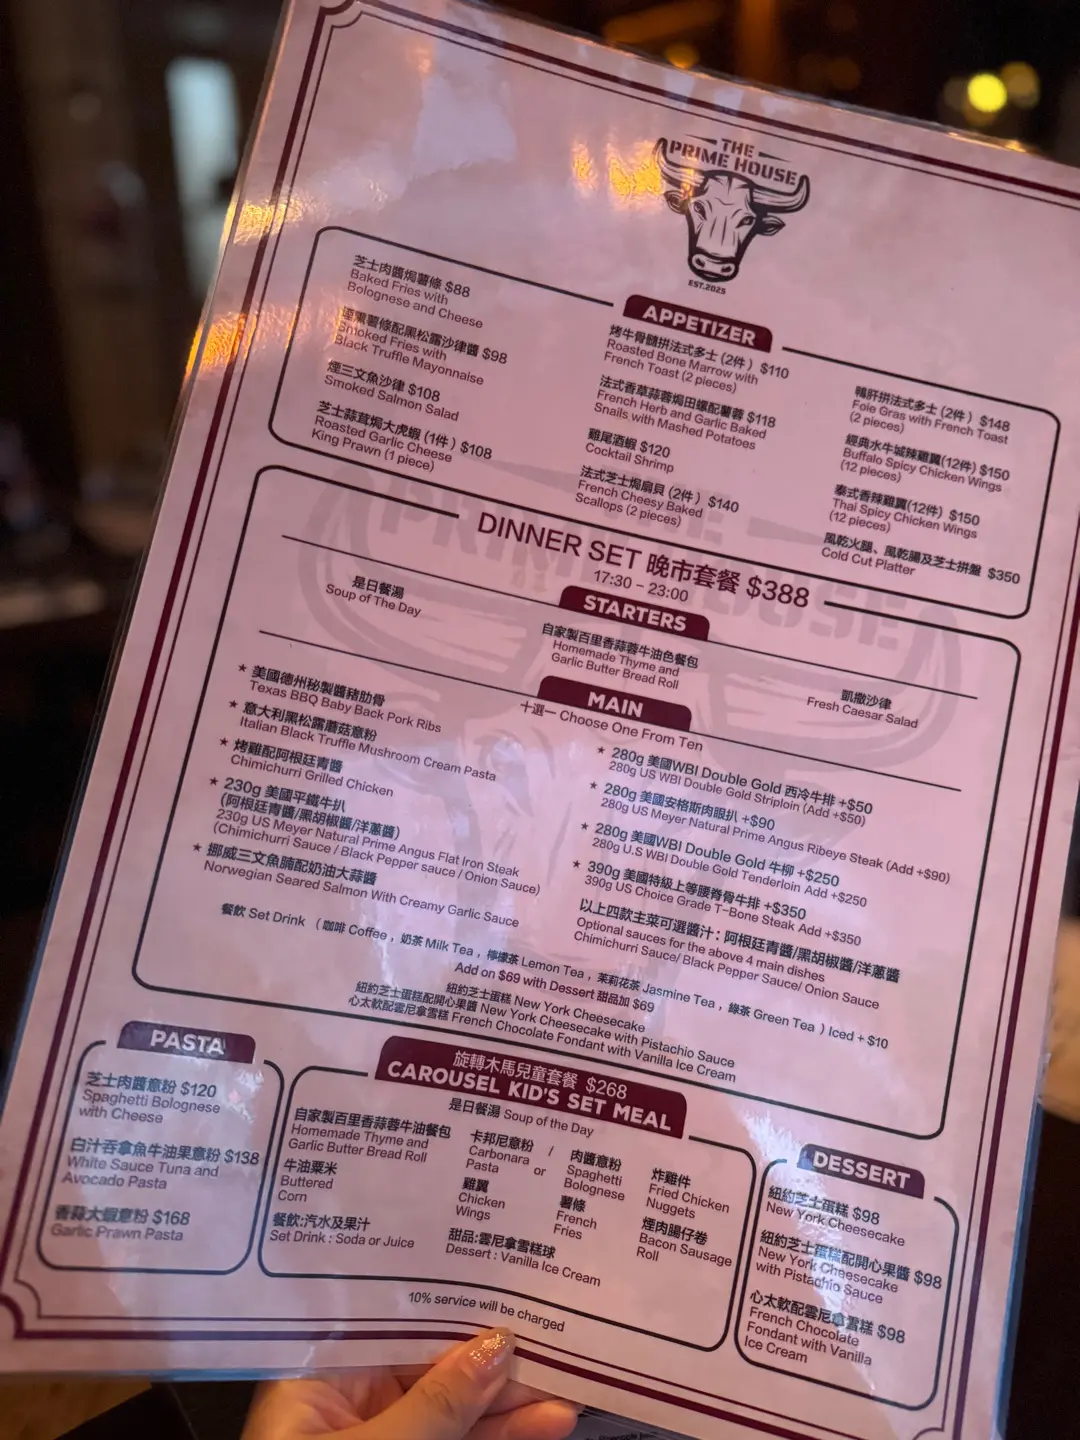 THE
PRIME HOUSE
EST.2025
APPETIZER
芝士肉醬焗薯條 $88
Baked Fries with
Bolognese and Cheese
煙燻薯條配黑松露沙律醬 $98
Smoked Fries with
Black Truffle Mayonnaise
煙三文魚沙律 $108
Smoked Salmon Salad
芝士蒜茸焗大虎蝦 (1件) $108
Roasted Garlic Cheese
King Prawn (1 piece)
烤牛骨髓拼法式多士 (2件) $110
Roasted Bone Marrow with
French Toast (2 pieces)
法式香草蒜蓉焗田螺配薯蓉 $118
French Herb and Garlic Baked
Snails with Mashed Potatoes
雞尾酒蝦 $120
Cocktail Shrimp
法式芝士焗扇貝 (2件) $140
French Cheesy Baked
Scallops (2 pieces)
鴨肝拼法式多士 (2件) $148
Foie Gras with French Toast
(2 pieces)
經典水牛城辣雞翼(12件) $150
Buffalo Spicy Chicken Wings
(12 pieces)
泰式香辣雞翼(12件) $150
Thai Spicy Chicken Wings
(12 pieces)
風乾火腿、風乾腸及芝士拼盤 $350
Cold Cut Platter
DINNER SET 晚市套餐 $388
17:30 - 23:00
STARTERS
是日餐湯
Soup of The Day
自家製百里香蒜蓉牛油包餐包
Homemade Thyme and
Garlic Butter Bread Roll
凱撒沙律
Fresh Caesar Salad
MAIN
十選一 Choose One From Ten
★ 美國德州秘製醬豬肋骨
Texas BBQ Baby Back Pork Ribs
★ 意大利黑松露蘑菇意粉
Italian Black Truffle Mushroom Cream Pasta
★ 烤雞配阿根廷青醬
Chimichurri Grilled Chicken
★ 230g 美國平鐵牛扒
(阿根廷青醬/黑胡椒醬/洋蔥醬)
230g US Meyer Natural Prime Angus Flat Iron Steak
(Chimichurri Sauce / Black Pepper sauce / Onion Sauce)
★ 挪威三文魚腩配奶油大蒜醬
Norwegian Seared Salmon With Creamy Garlic Sauce
★ 280g 美國WBI Double Gold 西冷牛排 +$50
280g US WBI Double Gold Striploin (Add +$50)
★ 280g 美國安格斯肉眼扒 +$90
280g US Meyer Natural Prime Angus Ribeye Steak (Add +$90)
★ 280g 美國WBI Double Gold 牛柳 +$250
280g U.S WBI Double Gold Tenderloin Add +$250
★ 390g 美國特級上等腰脊骨牛排 +$350
390g US Choice Grade T-Bone Steak Add +$350
以上四款主菜可選醬汁：阿根廷青醬/黑胡椒醬/洋蔥醬
Optional sauces for the above 4 main dishes
Chimichurri Sauce/ Black Pepper Sauce/ Onion Sauce
餐飲 Set Drink （咖啡 Coffee，奶茶 Milk Tea，檸檬茶 Lemon Tea，茉莉花茶 Jasmine Tea，綠茶 Green Tea ) Iced + $10
Add on $69 with Dessert 甜品加 $69
紐約芝士蛋糕 New York Cheesecake
紐約芝士蛋糕配開心果醬 New York Cheesecake with Pistachio Sauce
心太軟配雲尼拿雪糕 French Chocolate Fondant with Vanilla Ice Cream
PASTA
芝士肉醬意粉 $120
Spaghetti Bolognese
with Cheese
白汁吞拿魚牛油果意粉 $138
White Sauce Tuna and
Avocado Pasta
香蒜大蝦意粉 $168
Garlic Prawn Pasta
旋轉木馬兒童套餐 $268
CAROUSEL KID'S SET MEAL
是日餐湯 Soup of the Day
自家製百里香蒜蓉牛油餐包
Homemade Thyme and
Garlic Butter Bread Roll
卡邦尼意粉 / 肉醬意粉
Carbonara Pasta or Spaghetti Bolognese
炸雞件
Fried Chicken
Nuggets
牛油粟米
Buttered
Corn
雞翼
Chicken
Wings
薯條
French
Fries
煙肉腸仔卷
Bacon Sausage
Roll
餐飲:汽水及果汁
Set Drink : Soda or Juice
甜品:雲尼拿雪糕球
Dessert : Vanilla Ice Cream
DESSERT
紐約芝士蛋糕 $98
New York Cheesecake
紐約芝士蛋糕配開心果醬 $98
New York Cheesecake
with Pistachio Sauce
心太軟配雲尼拿雪糕 $98
French Chocolate
Fondant with Vanilla
Ice Cream
10% service will be charged